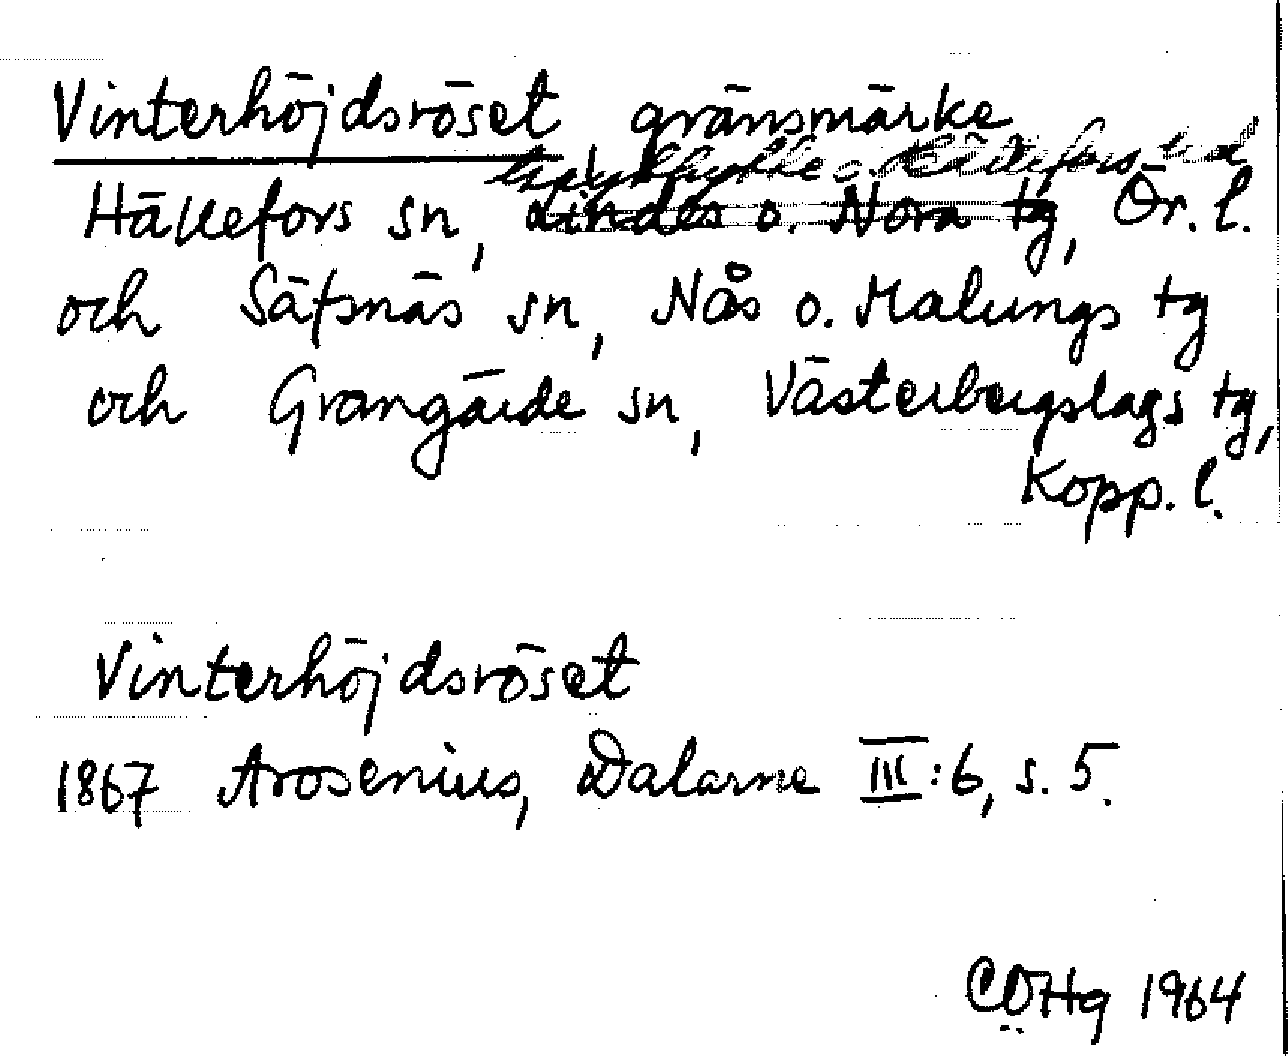 Vinterhöjdsröset gränsmärke
Grythytte o. Hällefors hd
Hällefors sn, Lindes o. Nora tg, Ör. l.
och Säfsnäs sn, Nås o. Malungs tg
och Grangärde sn, Västerbergslags tg,
Kopp. l.
Vinterhöjdsröset
1867 Arosenius, Dalarne III:6, s. 5.
COHg 1964